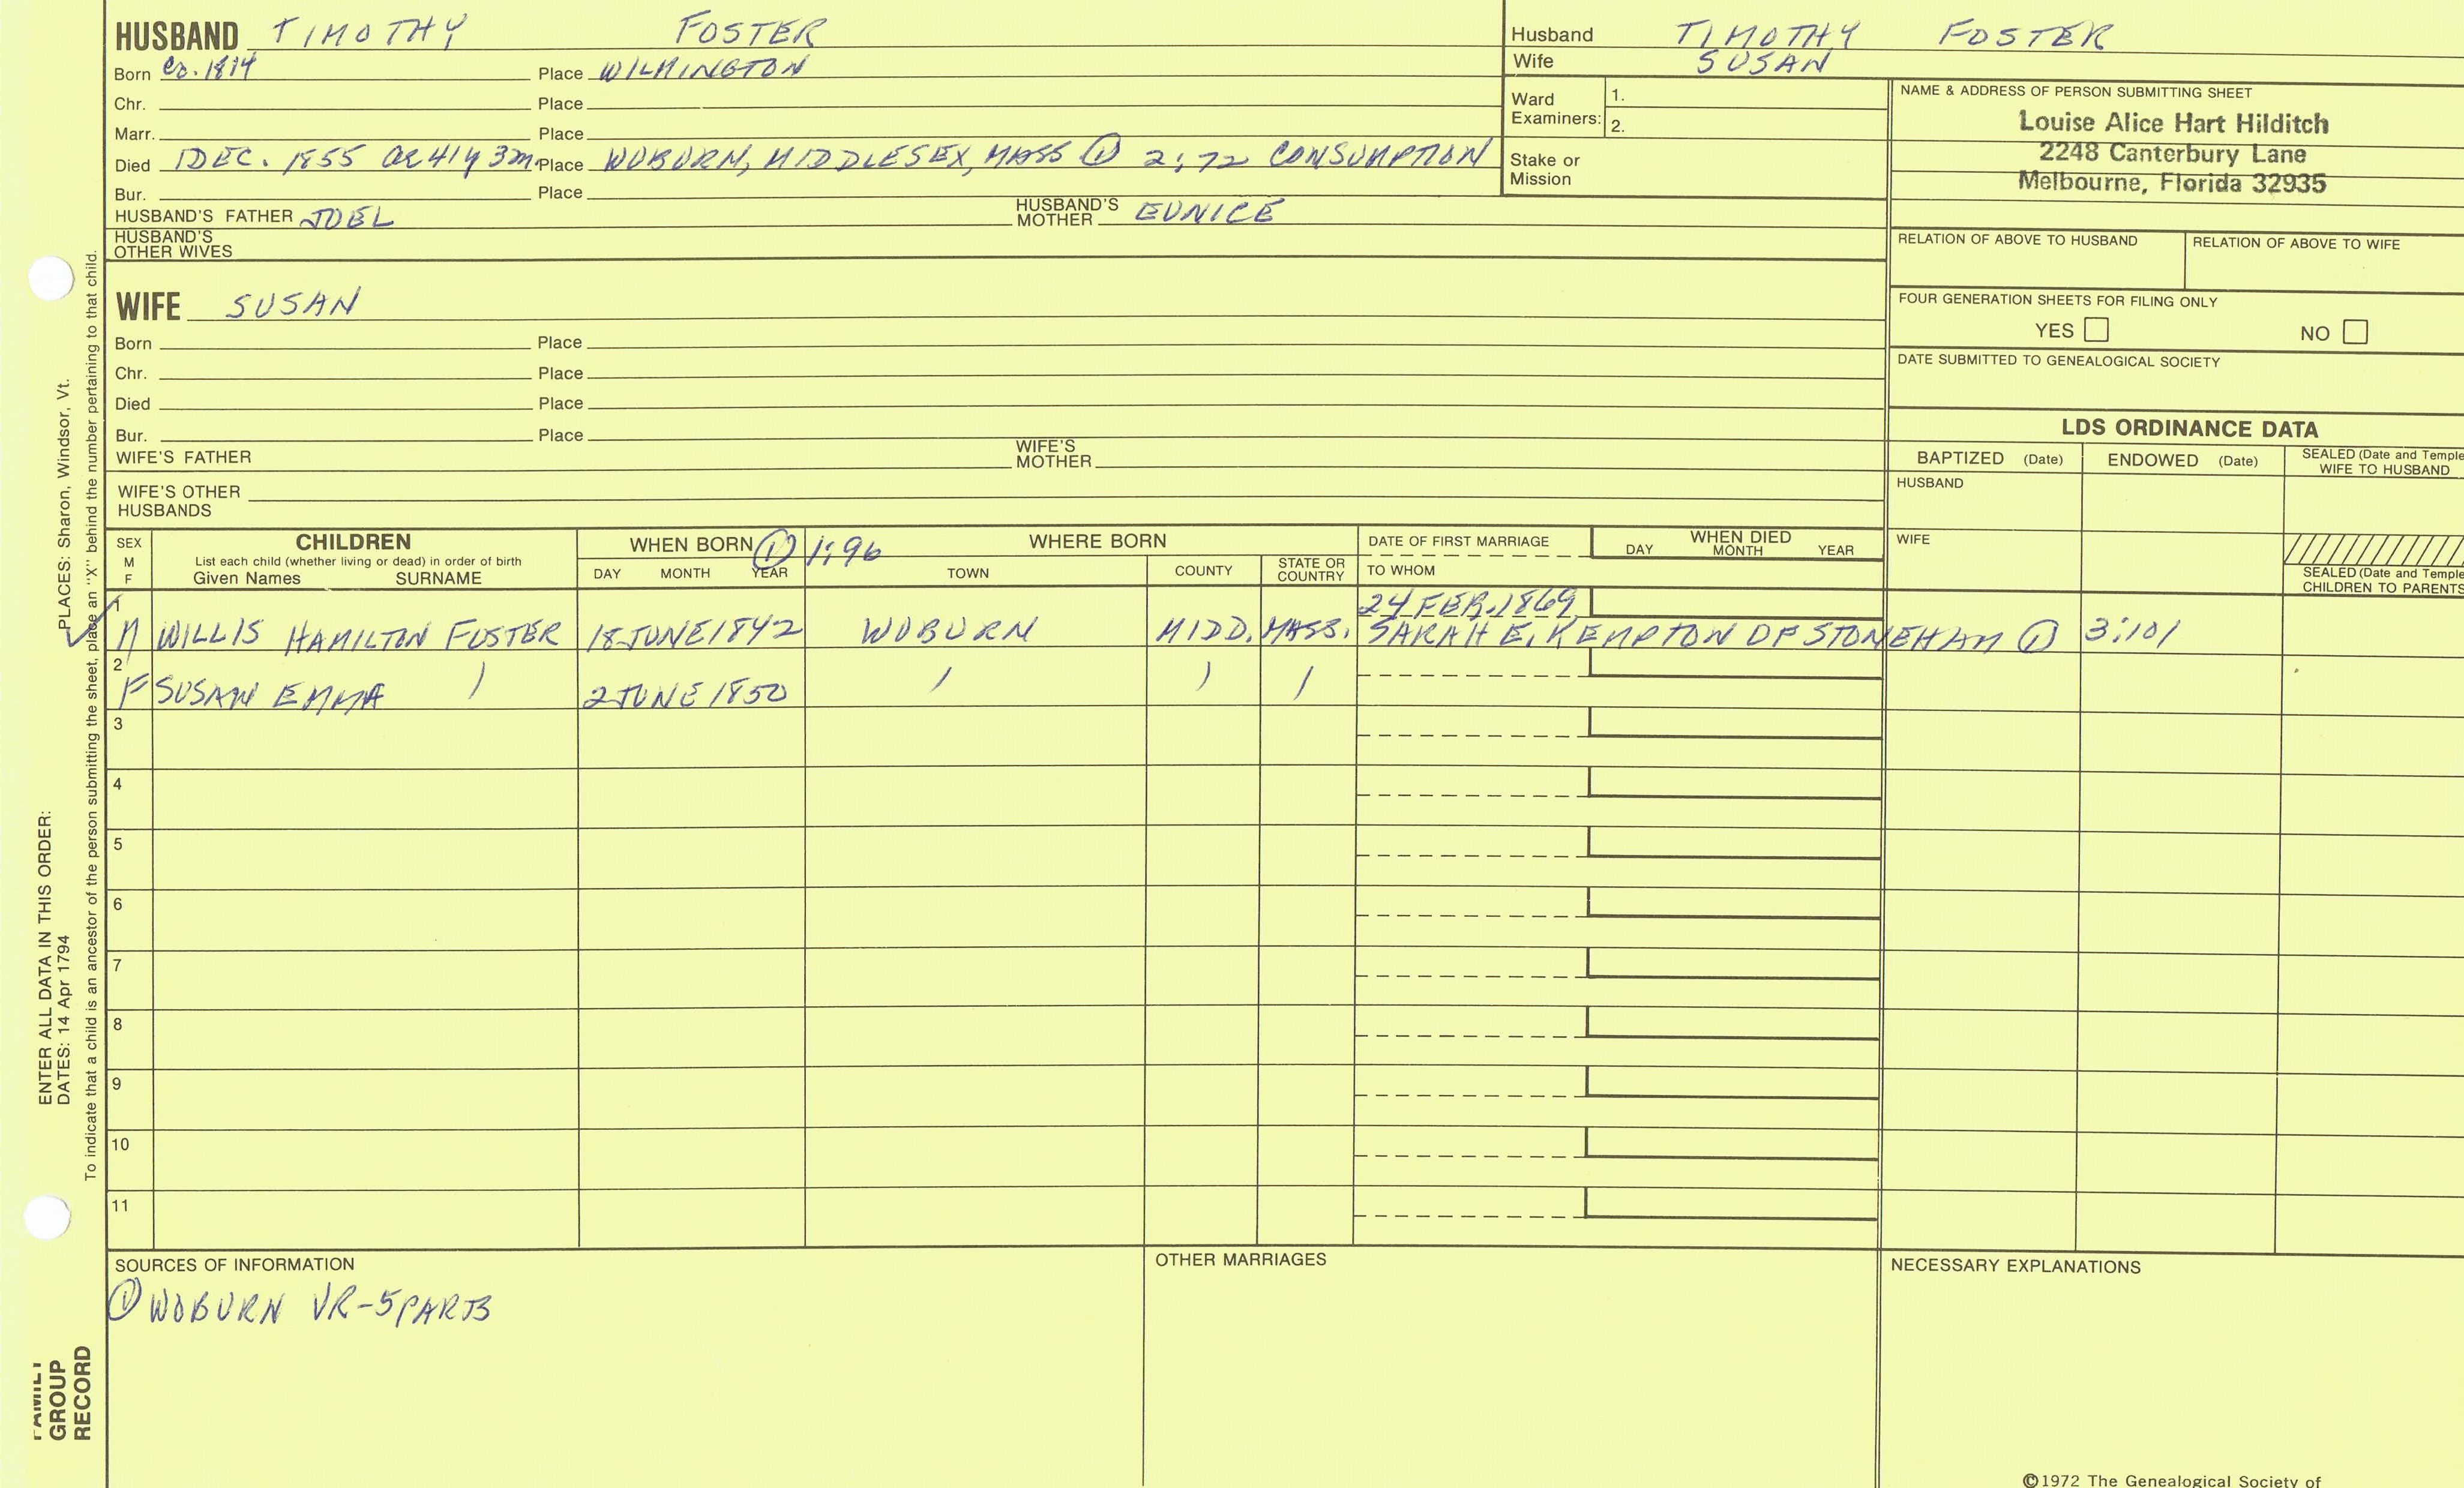 HUSBAND TIMOTHY FOSTER
Born Ca. 1814 Place WILMINGTON
Chr. Place
Marr. Place
Died 1 DEC. 1855 ae 41y 3m. Place WOBURN, MIDDLESEX, MASS ① 2:72 CONSUMPTION
Bur. Place
HUSBAND'S FATHER JOEL HUSBAND'S MOTHER EUNICE
HUSBAND'S OTHER WIVES
Husband TIMOTHY FOSTER
Wife SUSAN
Ward Examiners: 1.
2.
Stake or Mission
NAME & ADDRESS OF PERSON SUBMITTING SHEET
Louise Alice Hart Hilditch
2248 Canterbury Lane
Melbourne, Florida 32935
RELATION OF ABOVE TO HUSBAND RELATION OF ABOVE TO WIFE
FOUR GENERATION SHEETS FOR FILING ONLY
YES NO
DATE SUBMITTED TO GENEALOGICAL SOCIETY
WIFE SUSAN
Born Place
Chr. Place
Died Place
Bur. Place
WIFE'S FATHER WIFE'S MOTHER
WIFE'S OTHER HUSBANDS
LDS ORDINANCE DATA
BAPTIZED (Date) ENDOWED (Date) SEALED (Date and Temple
WIFE TO HUSBAND
HUSBAND
WIFE
SEALED (Date and Temple
CHILDREN TO PARENTS
SEX
M
F
CHILDREN
List each child (whether living or dead) in order of birth
Given Names SURNAME
WHEN BORN ① 1:96
DAY MONTH YEAR
WHERE BORN
TOWN COUNTY STATE OR COUNTRY
DATE OF FIRST MARRIAGE
TO WHOM
WHEN DIED
DAY MONTH YEAR
1 24 FEB. 1869
M WILLIS HAMILTON FOSTER 18 JUNE 1842 WOBURN MIDD. MASS. SARAH E. KEMPTON OF STONEHAM ① 3:101
2
F SUSAN EMMA / 2 JUNE 1850 / / /
3
4
5
6
7
8
9
10
11
SOURCES OF INFORMATION
① WOBURN VR-5 PARTS
OTHER MARRIAGES
NECESSARY EXPLANATIONS
©1972 The Genealogical Society of
ENTER ALL DATA IN THIS ORDER:
DATES: 14 Apr 1794 PLACES: Sharon, Windsor, Vt.
To indicate that a child is an ancestor of the person submitting the sheet, place an "X" behind the number pertaining to that child.
FAMILY
GROUP
RECORD